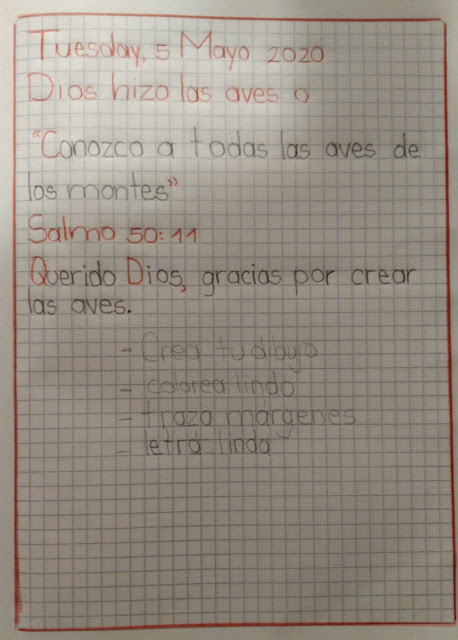 Tuesday, 5 Mayo 2020
Dios hizo las aves o
"Conozco a todas las aves de
los montes"
Salmo 50:11
Querido Dios, gracias por crear
las aves.
- Crea tu dibujo
- colorea lindo
- trazo márgenes
- letra linda